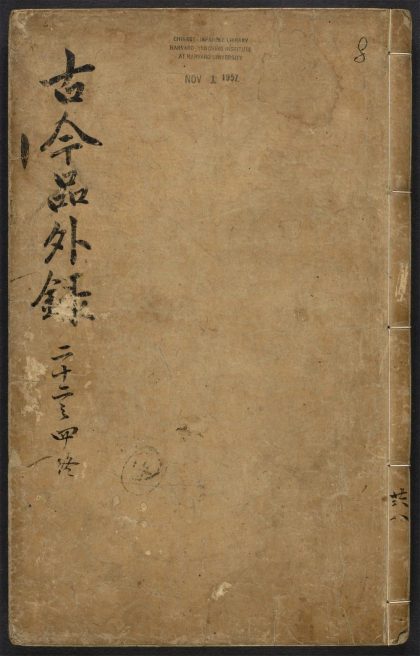 CHINESE-JAPANESE LIBRARY
HARVARD-YENCHING INSTITUTE
AT HARVARD UNIVERSITY
NOV 1 1957
8
古今品外録
二十二之四終
共八